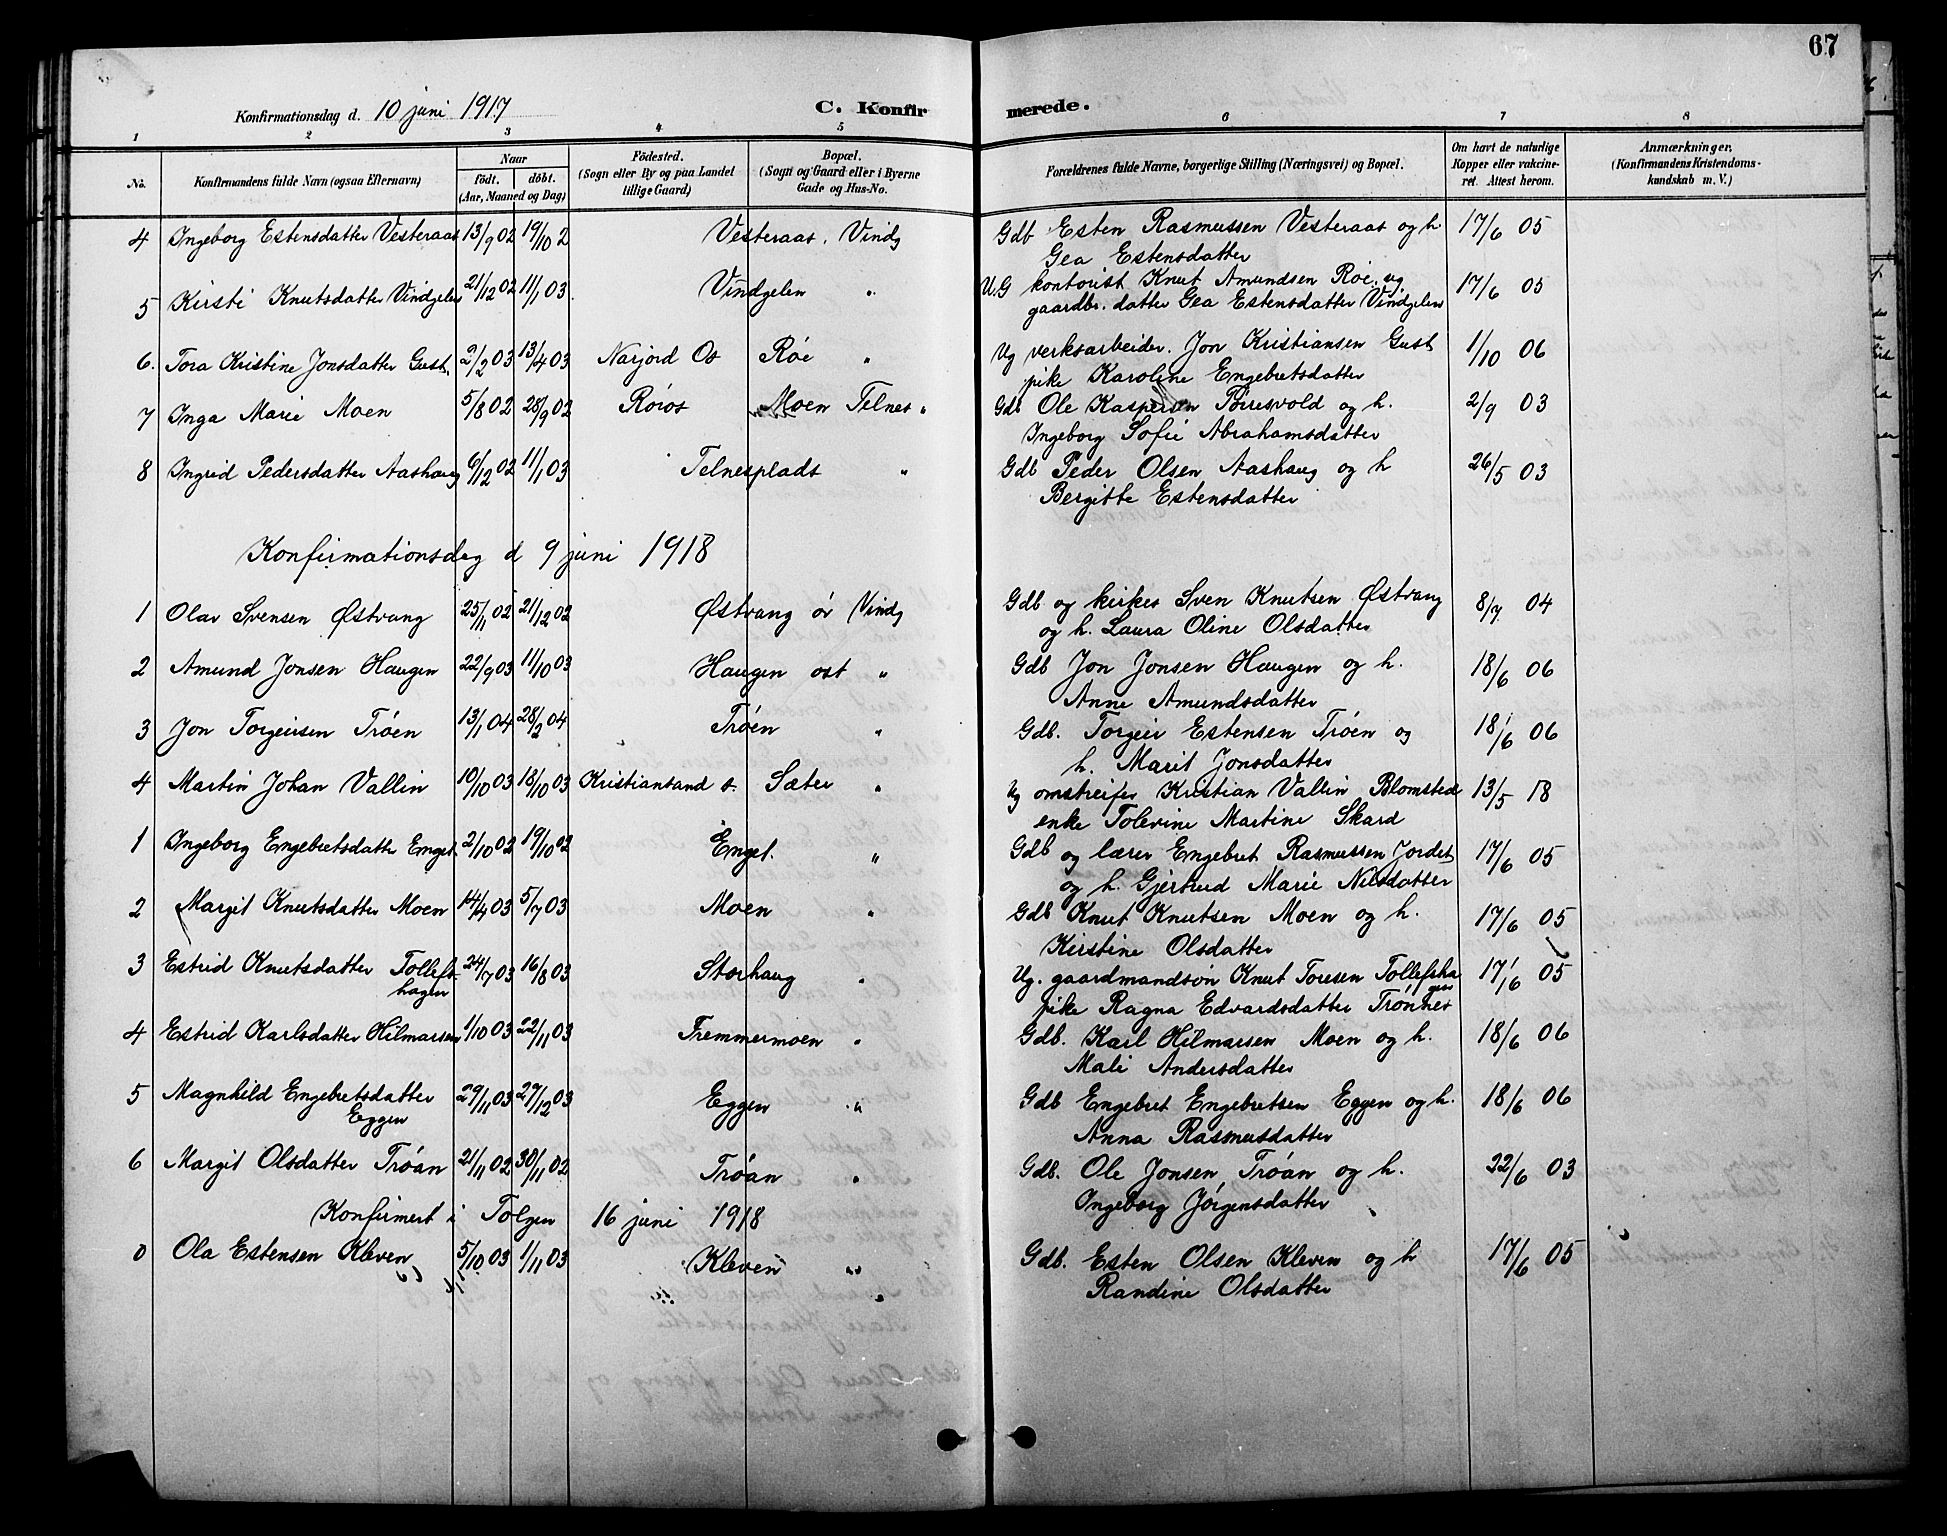 67
Konfirmationsdag d. 10 juni 1917 C. Konfirmerede.
1 2 3 4 5 6 7 8
No. Konfirmandens fulde Navn (ogsaa Efternavn) Naar födt. döbt. (Aar, Maaned og Dag) Födested. (Sogn eller By og paa Landet tillige Gaard) Bopæl. (Sogn og Gaard eller i Byerne Gade og Hus-No. Forældrenes fulde Navne, borgerlige Stilling (Næringsvei) og Bopæl. Om havt de naturlige Kopper eller vakcineret. Attest herom. Anmærkninger. (Konfirmandens Kristendomskundskab m. V.)
4 Ingeborg Estensdatter Vesteraas 13/9 02 19/10 2 Vesteraas. Vindg Gdb Esten Rasmussen Vesteraas og h. 17/6 05
Gea Estensdatter
5 Kirsti Knutsdatter Vindgelen 21/12 02 11/1 03. Vindgelen " U.G kontorist Knut Amundsen Røe. og 17/6 05
gaardbr. datter Gea Estensdatter Vindgelen
6. Tora Kristine Jonsdatter Gust. 2/2 03 13/4 03 Narjord Os Røe " Ug verksarbeider. Jon Kristiansen Gust 1/10 06
pike Karoline Engebretsdatter
7 Inga Marie Moen 5/8 02 28/9 02 Røros Moen Telnes " Gdb Ole Kaspersen Børesvold og h. 2/9 03
Ingeborg Sofie Abrahamsdatter
8 Ingrid Pedersdatter Aashaug 6/12 02 11/1 03 Telnesplads " Gdb Peder Olsen Aashaug og h 26/5 03
Bergitte Estensdatter
Konfirmationsdag d 9 juni 1918
1 Olav Svensen Østvang 25/11 02 21/12 02 Østvang ör Vindg Gdb og kirkes Sven Knutsen Østvang 8/7 04
og h. Laura Oline Olsdatter
2 Amund Jonsen Haugen 22/9 03 11/10 03 Haugen ost " Gdb Jon Jonsen Haugen og h. 18/6 06
Anne Amundsdatter
3 Jon Torgeirsen Trøen 13/1 04 28/2 04 Trøen " Gdb. Torgeir Estensen Trøen og 18/6 06
h. Marit Jonsdatter
4 Martin Johan Vallin 10/10 03 18/10 03 Kristiansand s. Sæter " Ug omstreifer Kristian Vallin Blomsted 13/5 18
enke Tolevine Martine Skard
1 Ingeborg Engebretsdatter Emget. 2/10 02 19/10 02 Emget. " Gdb og lærer Engebret Rasmussen Jordet 17/6 05
og h. Gjertrud Marie Nilsdatter
2 Margit Knutsdatter Moen 14/4 03 5/7 03 Moen " Gdb Knut Knutsen Moen og h. 17/6 05
Kirstine Olsdatter
3 Estrid Knutsdatter Tollefs- 24/7 03 16/8 03 Storhaug " Ug. gaardmandsøn Knut Toresen Tollefsha 17/6 05
hagen gen
pike Ragna Edvardsdatter Trønnes
4 Estrid Karlsdatter Hilmarsen 1/10 03 22/11 03 Fremmermoen " Gdb. Karl Hilmarsen Moen og h. 18/6 06
Mali Andersdatter
5 Magnhild Engebretsdatter 29/11 03 27/12 03 Eggen " Gdb Engebret Engebretsen Eggen og h. 18/6 06
Eggen Anna Rasmusdatter
6 Margit Olsdatter Trøan 21/11 02 30/11 02 Trøan " Gdb. Ole Jonsen Trøan og h. 22/6 03
Ingeborg Jørgensdatter
Konfirmert i Tolgen 16 juni 1918
0 Ola Estensen Kleven 5/10 03 1/11 03 Kleven " Gdb. Esten Olsen Kleven og h 17/6 05
Randine Olsdatter